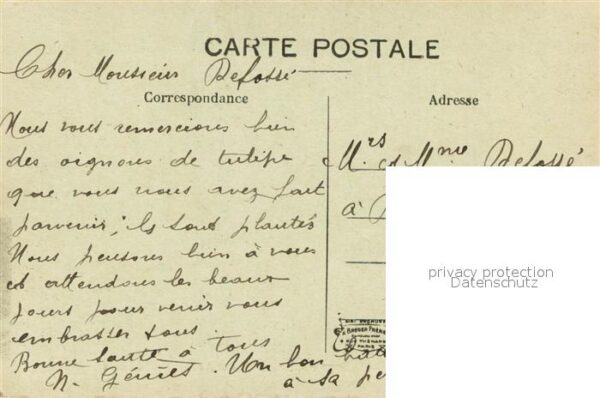 CARTE POSTALE
Cher Monsieur Defossé
Correspondance
Adresse
Nous vous remercions bien
des oignons de tulipe
que vous nous avez fait
parvenir, ils sont plantés
Nous pensons bien à vous
et attendons les beaux
jours pour venir vous
embrasser tous.
Bonne santé à tous
Un bon
à sa
Mrs et Mme Defossé
à
privacy protection
Datenschutz